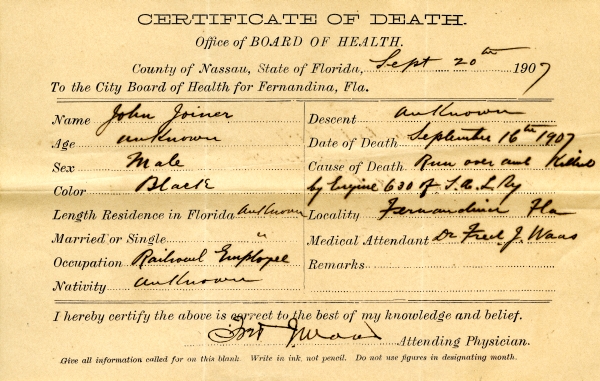 CERTIFICATE OF DEATH.
Office of BOARD OF HEALTH.
County of Nassau, State of Florida, Sept 20th 1907
To the City Board of Health for Fernandina, Fla.
Name John Joiner
Age unKnown
Sex Male
Color Black
Length Residence in Florida unKnown
Married or Single "
Occupation Railroad Employee
Nativity unKnown
Descent unKnown
Date of Death September 16th 1907
Cause of Death Run over and Killed
by Engine 630 of S.A.L Ry
Locality Fernandina Fla
Medical Attendant Dr Fred J. Waas
Remarks
I hereby certify the above is correct to the best of my knowledge and belief.
Waas Attending Physician.
Give all information called for on this blank. Write in ink, not pencil. Do not use figures in designating month.